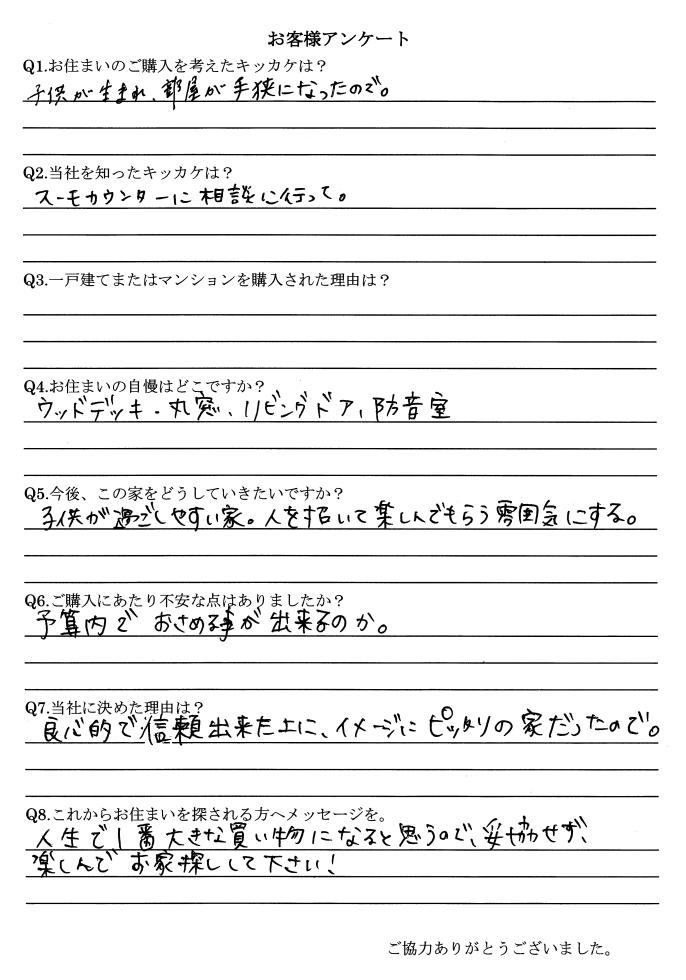 お客様アンケート
Q1.お住まいのご購入を考えたキッカケは？
子供が生まれ、部屋が手狭になったので。
Q2.当社を知ったキッカケは？
スーモカウンターに相談に行って。
Q3.一戸建てまたはマンションを購入された理由は？
Q4.お住まいの自慢はどこですか？
ウッドデッキ・丸窓、リビングドア、防音室
Q5.今後、この家をどうしていきたいですか？
子供が過ごしやすい家。人を招いて楽しんでもらう雰囲気にする。
Q6.ご購入にあたり不安な点はありましたか？
予算内でおさめる事が出来るのか。
Q7.当社に決めた理由は？
良心的で信頼出来た上に、イメージにピッタリの家だったので。
Q8.これからお住まいを探される方へメッセージを。
人生で1番大きな買い物になると思うので、妥協せず、
楽しんでお家探しして下さい！
ご協力ありがとうございました。